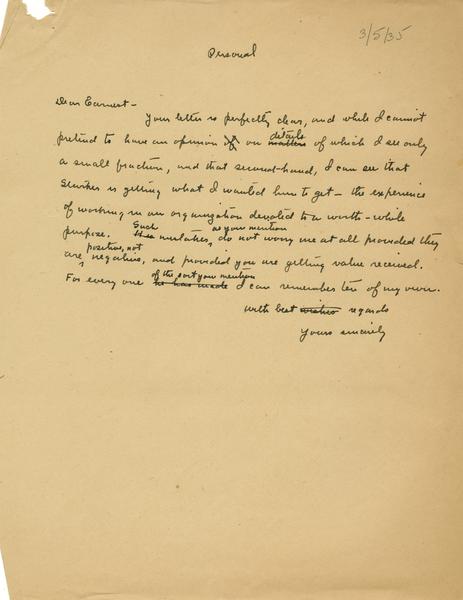 3/5/35
Personal
Dear Earnest -
Your letter is perfectly clear, and while I cannot
details
pretend to have an opinion of on matters of which I see only
a small fraction, and that second-hand, I can see that
is getting what I wanted him to get - the experience
of working in an organization devoted to a worth-while
Such as you mention
purpose. His mistakes, do not worry me at all provided they
positive, not
are negative, and provided you are getting value received.
of the sort you mention
For every one he has made I can remember ten of my own.
With best wishes regards
Yours sincerely